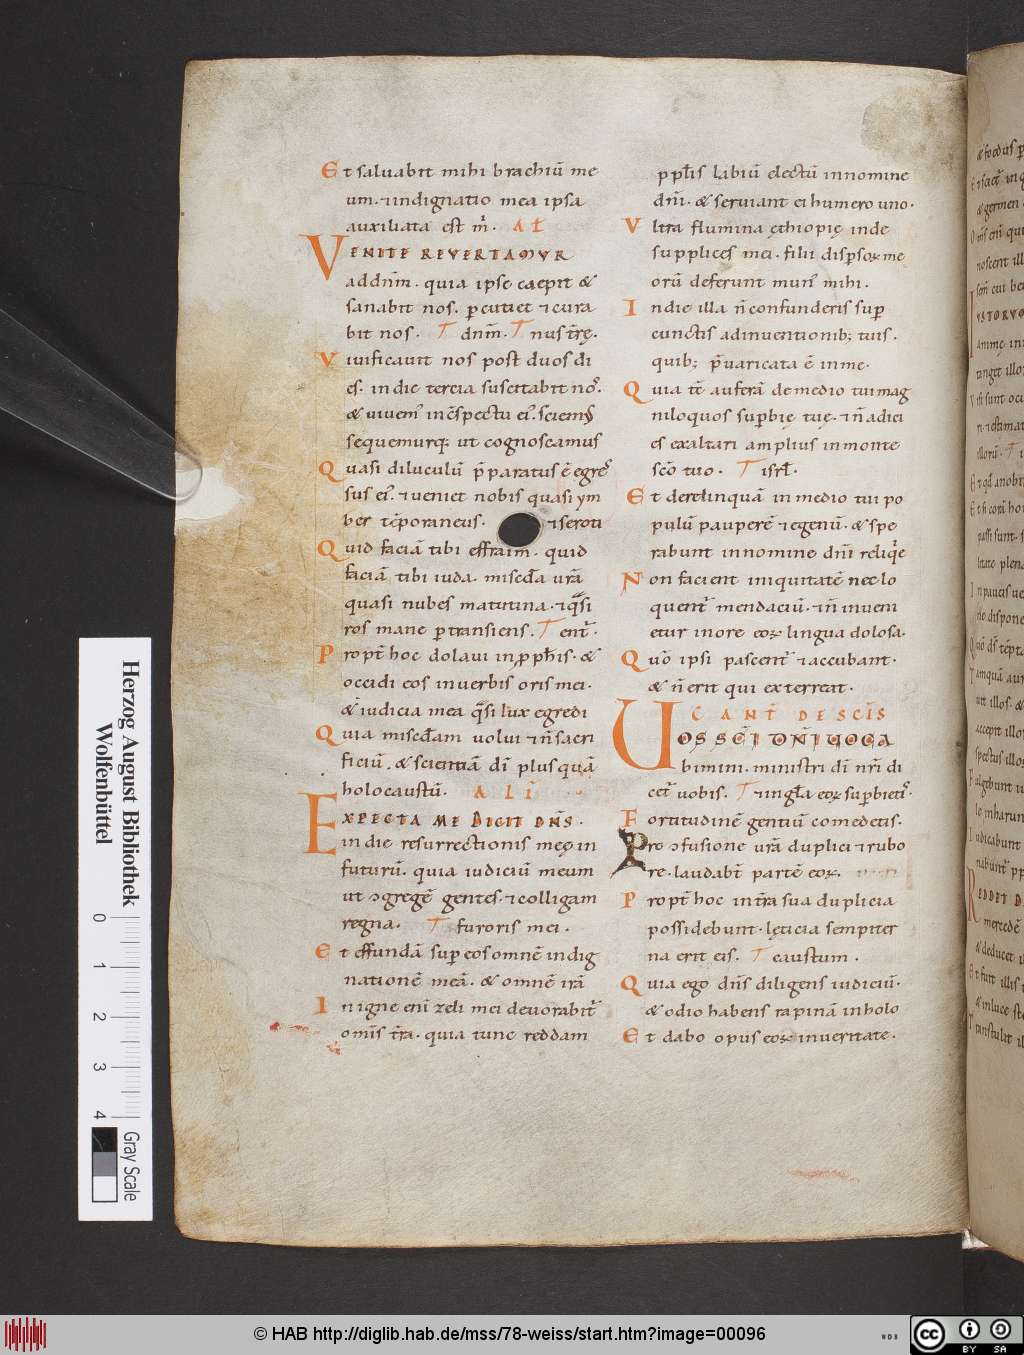 Et saluabit mihi brachiū me
um. ⁊indignatio mea ipsa
auxiliata est m̄. AŁ
VENITE REVERTAMVR
addnm̄. quia ipse caepit &
sanabit nos. percutiet ⁊cura
bit nos. T dnm̄. T nus t̄rę.
Viuificauit nos post duos di
es. in die tercia suscitabit nos.
& uiuem' in c̄spectu ei'. sciem'
sequemurq; ut cognoscamus
Quasi diluculū p̄paratus ē egres
sus ei'. ⁊ueniet nobis quasi ym
ber tēporaneus. ⁊seroti
Quid faciā tibi effraim. quid
faciā tibi iuda. misedā urā
quasi nubes matutina. ⁊q̄si
ros mane ptransiens. T ent'.
Propt̄ hoc dolaui in pph̄is. &
occidi eos in uerbis oris mei.
& iudicia mea q̄si lux egredi
Quia misedam uolui ⁊n̄ sacri
ficiū. & scientiā dī plus quā
holocaustū. ALI
EXPECTA ME DICIT DN̄S.
in die resurrectionis meę in
futurū. quia iudiciū meum
ut ɔgregē gentes. ⁊colligam
regna. T furoris mei.
Et effundā sup eos omnē indig
nationē meā. & omnē irā
In igne enī zeli mei deuorabit'
omīs t̄ra. quia tunc reddam
pplīs labiū electū in nomine
dnī. & seruiant ei humero uno.
Vltra flumina ęthiopię inde
supplices mei. filii dispsoꝝ me
orū deferent mun' mihi.
In die illa n̄ confunderis sup
cunctis adinuentionib; tuis.
quib; p̄uaricata ē in me.
Quia tc̄ auferā de medio tui mag
niloquos supbię tuę. ⁊n̄ adici
es exaltari amplius in monte
scō tuo. T isrł.
Et derelinquā in medio tui po
pulū pauperē ⁊egenū. & spe
rabunt in nomine dnī reliq̄e
Non facient iniquitatē nec lo
quent' mendaciū. ⁊n̄ inueni
etur in ore eoꝝ lingua dolosa.
Quō ipsi pascent' ⁊accubant.
& n̄ erit qui exterreat.
CANT DE SCĪS
UOS SCĪ DNĪ UOCA
bimini. ministri dī nr̄i di
cet' uobis. T ⁊in glā eoꝝ supbiet'.
Fortitudinē gentiū comedetis.
Pro ɔfusione urā duplici ⁊rubo
re. laudabt̄ partē eoꝝ.
Propt̄ hoc in t̄ra sua duplicia
possidebunt. lęticia sempiter
na erit eis. T caustum.
Quia ego dn̄s diligens iudiciū.
& odio habens rapinā in holo
Et dabo opus eoꝝ in ueritate.
Herzog August Bibliothek
Wolfenbüttel
0 1 2 3 4
Gray Scale
© HAB http://diglib.hab.de/mss/78-weiss/start.htm?image=00096
WDB
cc BY SA